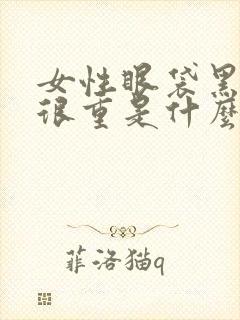 女性眼袋黑
很重是什麼
菲洛猫q